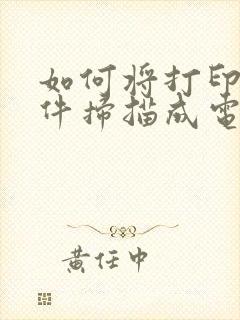 如何将打印
件扫描成電
黄任中